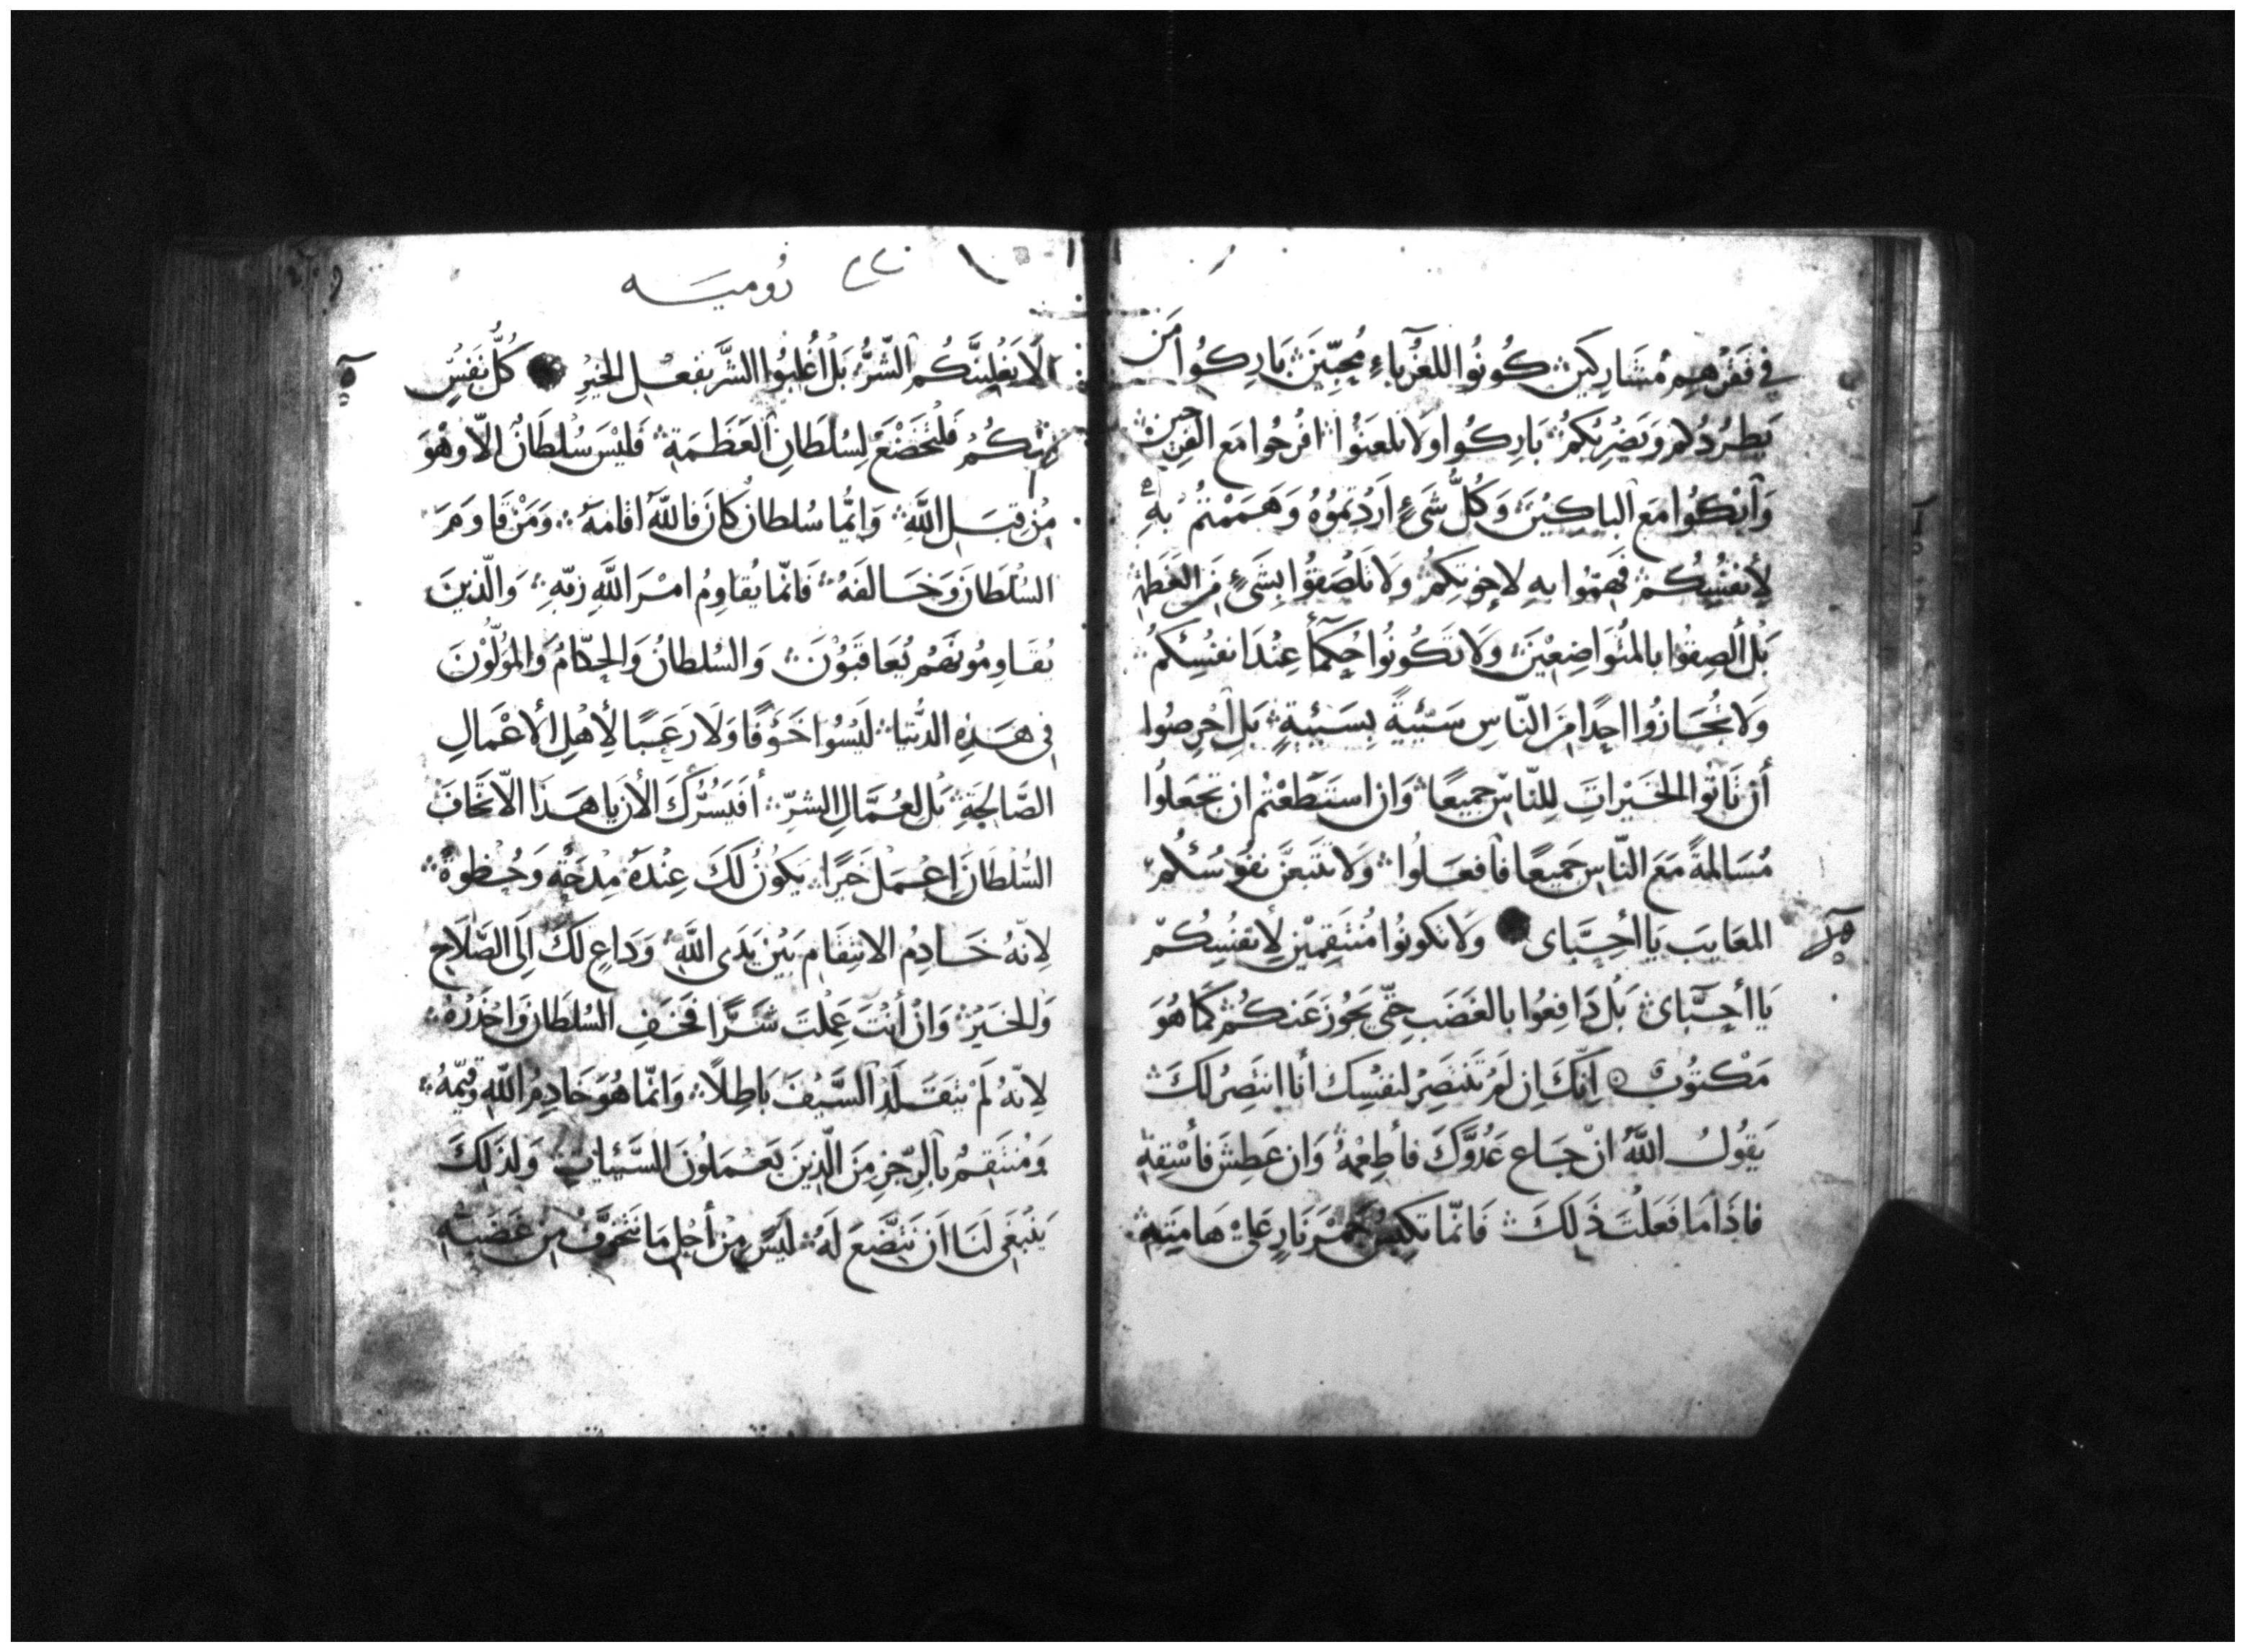 في فَقْرِهِم مُشَارِكِينَ كُونُوا للغُرَباءِ مُحِبِّينَ بَارِكُوا مَن
يَطرُدُكم وَيَضُرُّ بِكُم بَارِكُوا وَلَا تَلعَنُوا افرَحُوا مَع الفرِحين
وَابْكُوا مَع الباكِينَ وَكُلُّ شَيءٍ اَرَدْتمُوُهُ وَهَمَمْتُمُ بِهِ
لِأَنفُسِكُم فَهِمّوا بهِ لاِخوَتِكُمُ وَلَا تَلصَقُوا بِشَيءٍ مِنَ العَظَمَة
بَلْ الصِقُوا بالمُتَوَاضِعِينَ وَلَا تَكُونُوا حُكَمَآءً عِنْدَ انفُسِكُمُ
وَلَا تُجَازُوا احَدًا مِنَ النّاسِ سَيّئَةً بِسَيّئَةٍ بَلِ احْرِصُوا
أَنْ تَاتُوا الخَيْراتِ لِلنّاسِ جَميعًا وَان استَطَعْتُم ان تجعَلُوا
مُسَالمةً مَعَ النّاسِ جَميعًا فافعَلُوا وَلَا تَتبَعَنَّ نفُوسُكُم
المعَايبَ يَا أحِبَّاى وَلَا تَكونُوا مُنتَقِمِيْنَ لِأَنفُسِكُم
يَا أحِبَّاىَ بَلْ دَافِعُوا بالغَضَبِ حَتّى يَجُوزَ عَنكُم كَمَا هُوَ
مَكتوُبٌ اِنّكَ اِن لَم تَنتَصِرْ لنفسِكَ أنا انتَصِرُ لكَ
يَقوُلُ اللّهُ انْ جَاعَ عَدُوُّكَ فأطعِمْهُ وَان عَطِشَ فأسْقِهِ
فاذَا مَا فَعَلْتَ ذَلِكَ فَانّما تكبِسُ جَمْرَ نَارٍ عَلىْ هَامَتِهِ
رُوميَه
لَا يَغْلِبَنَّكُم الشَّرُّ بَلْ أغْلِبُوا الشَّرَّ بفِعْلِ الخَيْرِ كُلُّ نَفْسٍ
مِنكُمُ فلتخضَعْ لِسُلطَانِ العَظَمَةِ فَليْسَ سُلطَانٌ الّا وَهْوَ
مِنْ قِبَلِ اللّهِ وَايُّما سُلطانٍ كانَ فَاللّهُ اقامَهُ وَمَنْ قاوَمَ
السُلطَانَ وَخَالفَهُ فَانّما يُقاوِمُ امْرَ اللّهِ رَبّهِ وَالّذينَ
يُقَاوِمُونَهُم يُعَاقَبُوْنَ وَالسُلطانُ وَالحكّامُ وَالمُوَلَّوْنَ
فى هَذِهِ الدُّنيَا لَيْسُوا خَوْفًا وَلَا رَعَبًا لِأَهْلِ الأعْمَالِ
الصَّالِحَةِ بَل لعُمَّالِ الشرّ أفَيَسُرُّكَ الأنَ يَا هَذَا الّا تَخَافَ
السُلطَانَ اعْمَلْ خَيرًا يَكوُنُ لَكَ عِنْدَهُ مِدْحَةٌ وَحُظوَةٌ
لِانّهُ خَادِمُ الانتِقَامِ بَيْنَ يَدَى اللّهِ وَدَاعٍ لكَ اِلَى الصَّلَاحِ
وَالخَيْرِ وَانْ أنْتَ عَمِلْتَ شَرًّا فخَفِ السُلطَانَ وَاحْذَرْهُ
لِانّهُ لَمْ يَتَقَلَّدِ السَّيْفَ بَاطِلًا وَانّما هُوَ خَادِمُ اللّهِ
وَمُنتَقِمٌ بالرّجْزِ مِنَ الّذِينَ يَعْمَلُونَ السَّيِّئاتِ وَلِذَلِكَ
يَنْبَغِى لَنَا انْ نَتَضَّعَ لَهُ لَيْسَ مِنْ أجْلِ مَا نَتَخَوَّفُ مِنْ غَضَبِهِ